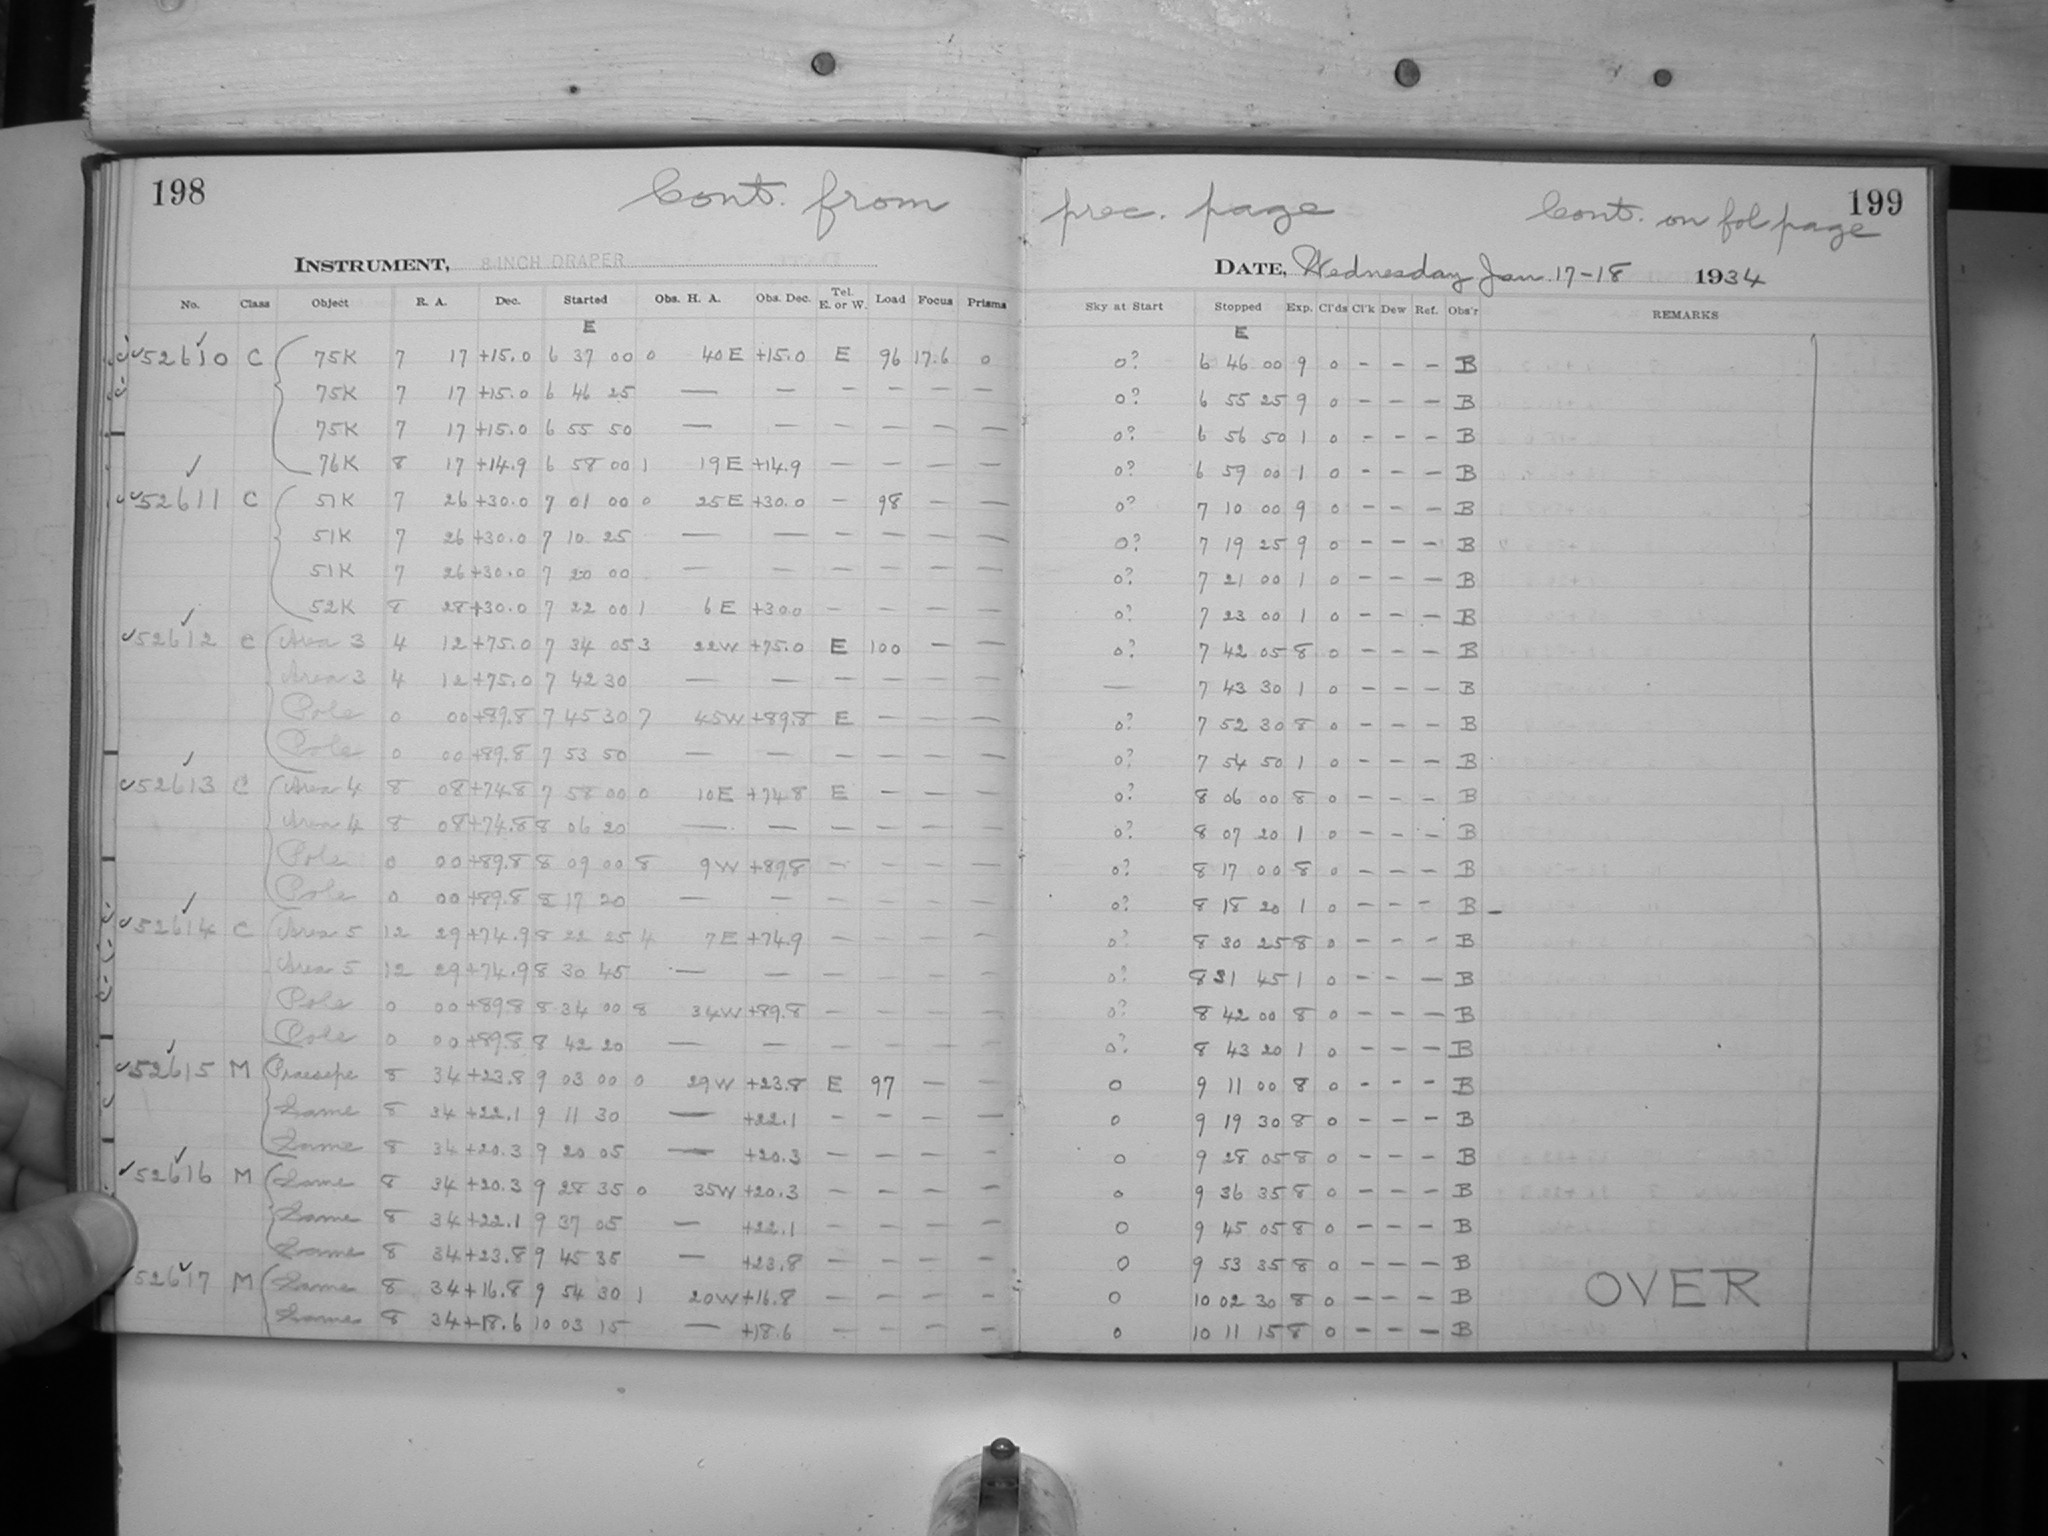 198 Cont. from prec. page Cont. on fol page 199
INSTRUMENT, 8-INCH DRAPER DATE, Wednesday Jan. 17-18 1934
No. Class Object R. A. Dec. Started Obs. H. A. Obs. Dec. Tel. E. or W. Load Focus Prisms Sky at Start Stopped Exp. Cl'ds Cl'k Dew Ref. Obs'r REMARKS
E E
52610 C 75K 7 17 +15.0 6 37 00 0 40 E +15.0 E 96 17.6 0 0? 6 46 00 9 0 - - - B
75K 7 17 +15.0 6 46 25 — — — — — — 0? 6 55 25 9 0 - - - B
75K 7 17 +15.0 6 55 50 — — — — — — 0? 6 56 50 1 0 - - - B
76K 8 17 +14.9 6 58 00 1 19 E +14.9 — — — — 0? 6 59 00 1 0 - - - B
52611 C 51K 7 26 +30.0 7 01 00 0 25 E +30.0 - 98 — — 0? 7 10 00 9 0 - - - B
51K 7 26 +30.0 7 10 25 — — — — — — 0? 7 19 25 9 0 - - - B
51K 7 26 +30.0 7 20 00 — — — — — — 0? 7 21 00 1 0 - - - B
52K 8 28 +30.0 7 22 00 1 6 E +30.0 — — — — 0? 7 23 00 1 0 - - - B
52612 C Area 3 4 12 +75.0 7 34 05 3 22W +75.0 E 100 — — 0? 7 42 05 8 0 - - - B
Area 3 4 12 +75.0 7 42 30 — — — — — — — 7 43 30 1 0 - - - B
Pole 0 00 +89.8 7 45 30 7 45W +89.8 E — — — 0? 7 52 30 8 0 - - - B
Pole 0 00 +89.8 7 53 50 — — — — — — 0? 7 54 50 1 0 - - - B
52613 C Area 4 8 08 +74.8 7 58 00 0 10E +74.8 E — — — 0? 8 06 00 8 0 - - - B
Area 4 8 08 +74.8 8 06 20 — — — — — — 0? 8 07 20 1 0 - - - B
Pole 0 00 +89.8 8 09 00 8 9W +89.8 — — — — 0? 8 17 00 8 0 - - - B
Pole 0 00 +89.8 8 17 20 — — — — — — 0? 8 18 20 1 0 - - - B
52614 C Area 5 12 29 +74.9 8 22 25 4 7E +74.9 — — — — 0? 8 30 25 8 0 - - - B
Area 5 12 29 +74.9 8 30 45 — — — — — — 0? 8 31 45 1 0 - - - B
Pole 0 00 +89.8 8 34 00 8 34W +89.8 — — — — 0? 8 42 00 8 0 - - - B
Pole 0 00 +89.8 8 42 20 — — — — — — 0? 8 43 20 1 0 - - - B
52615 M Praesepe 8 34 +23.8 9 03 00 0 29W +23.8 E 97 — — 0 9 11 00 8 0 - - - B
Same 8 34 +22.1 9 11 30 — +22.1 — — — — 0 9 19 30 8 0 - - - B
Same 8 34 +20.3 9 20 05 — +20.3 — — — — 0 9 28 05 8 0 - - - B
52616 M Same 8 34 +20.3 9 28 35 0 35W +20.3 — — — — 0 9 36 35 8 0 - - - B
Same 8 34 +22.1 9 37 05 — +22.1 — — — — 0 9 45 05 8 0 - - - B
Same 8 34 +23.8 9 45 35 — +23.8 — — — — 0 9 53 35 8 0 - - - B
52617 M Same 8 34 +16.8 9 54 30 1 20W +16.8 — — — — 0 10 02 30 8 0 - - - B OVER
Same 8 34 +18.6 10 03 15 — +18.6 — — — — 0 10 11 15 8 0 - - - B